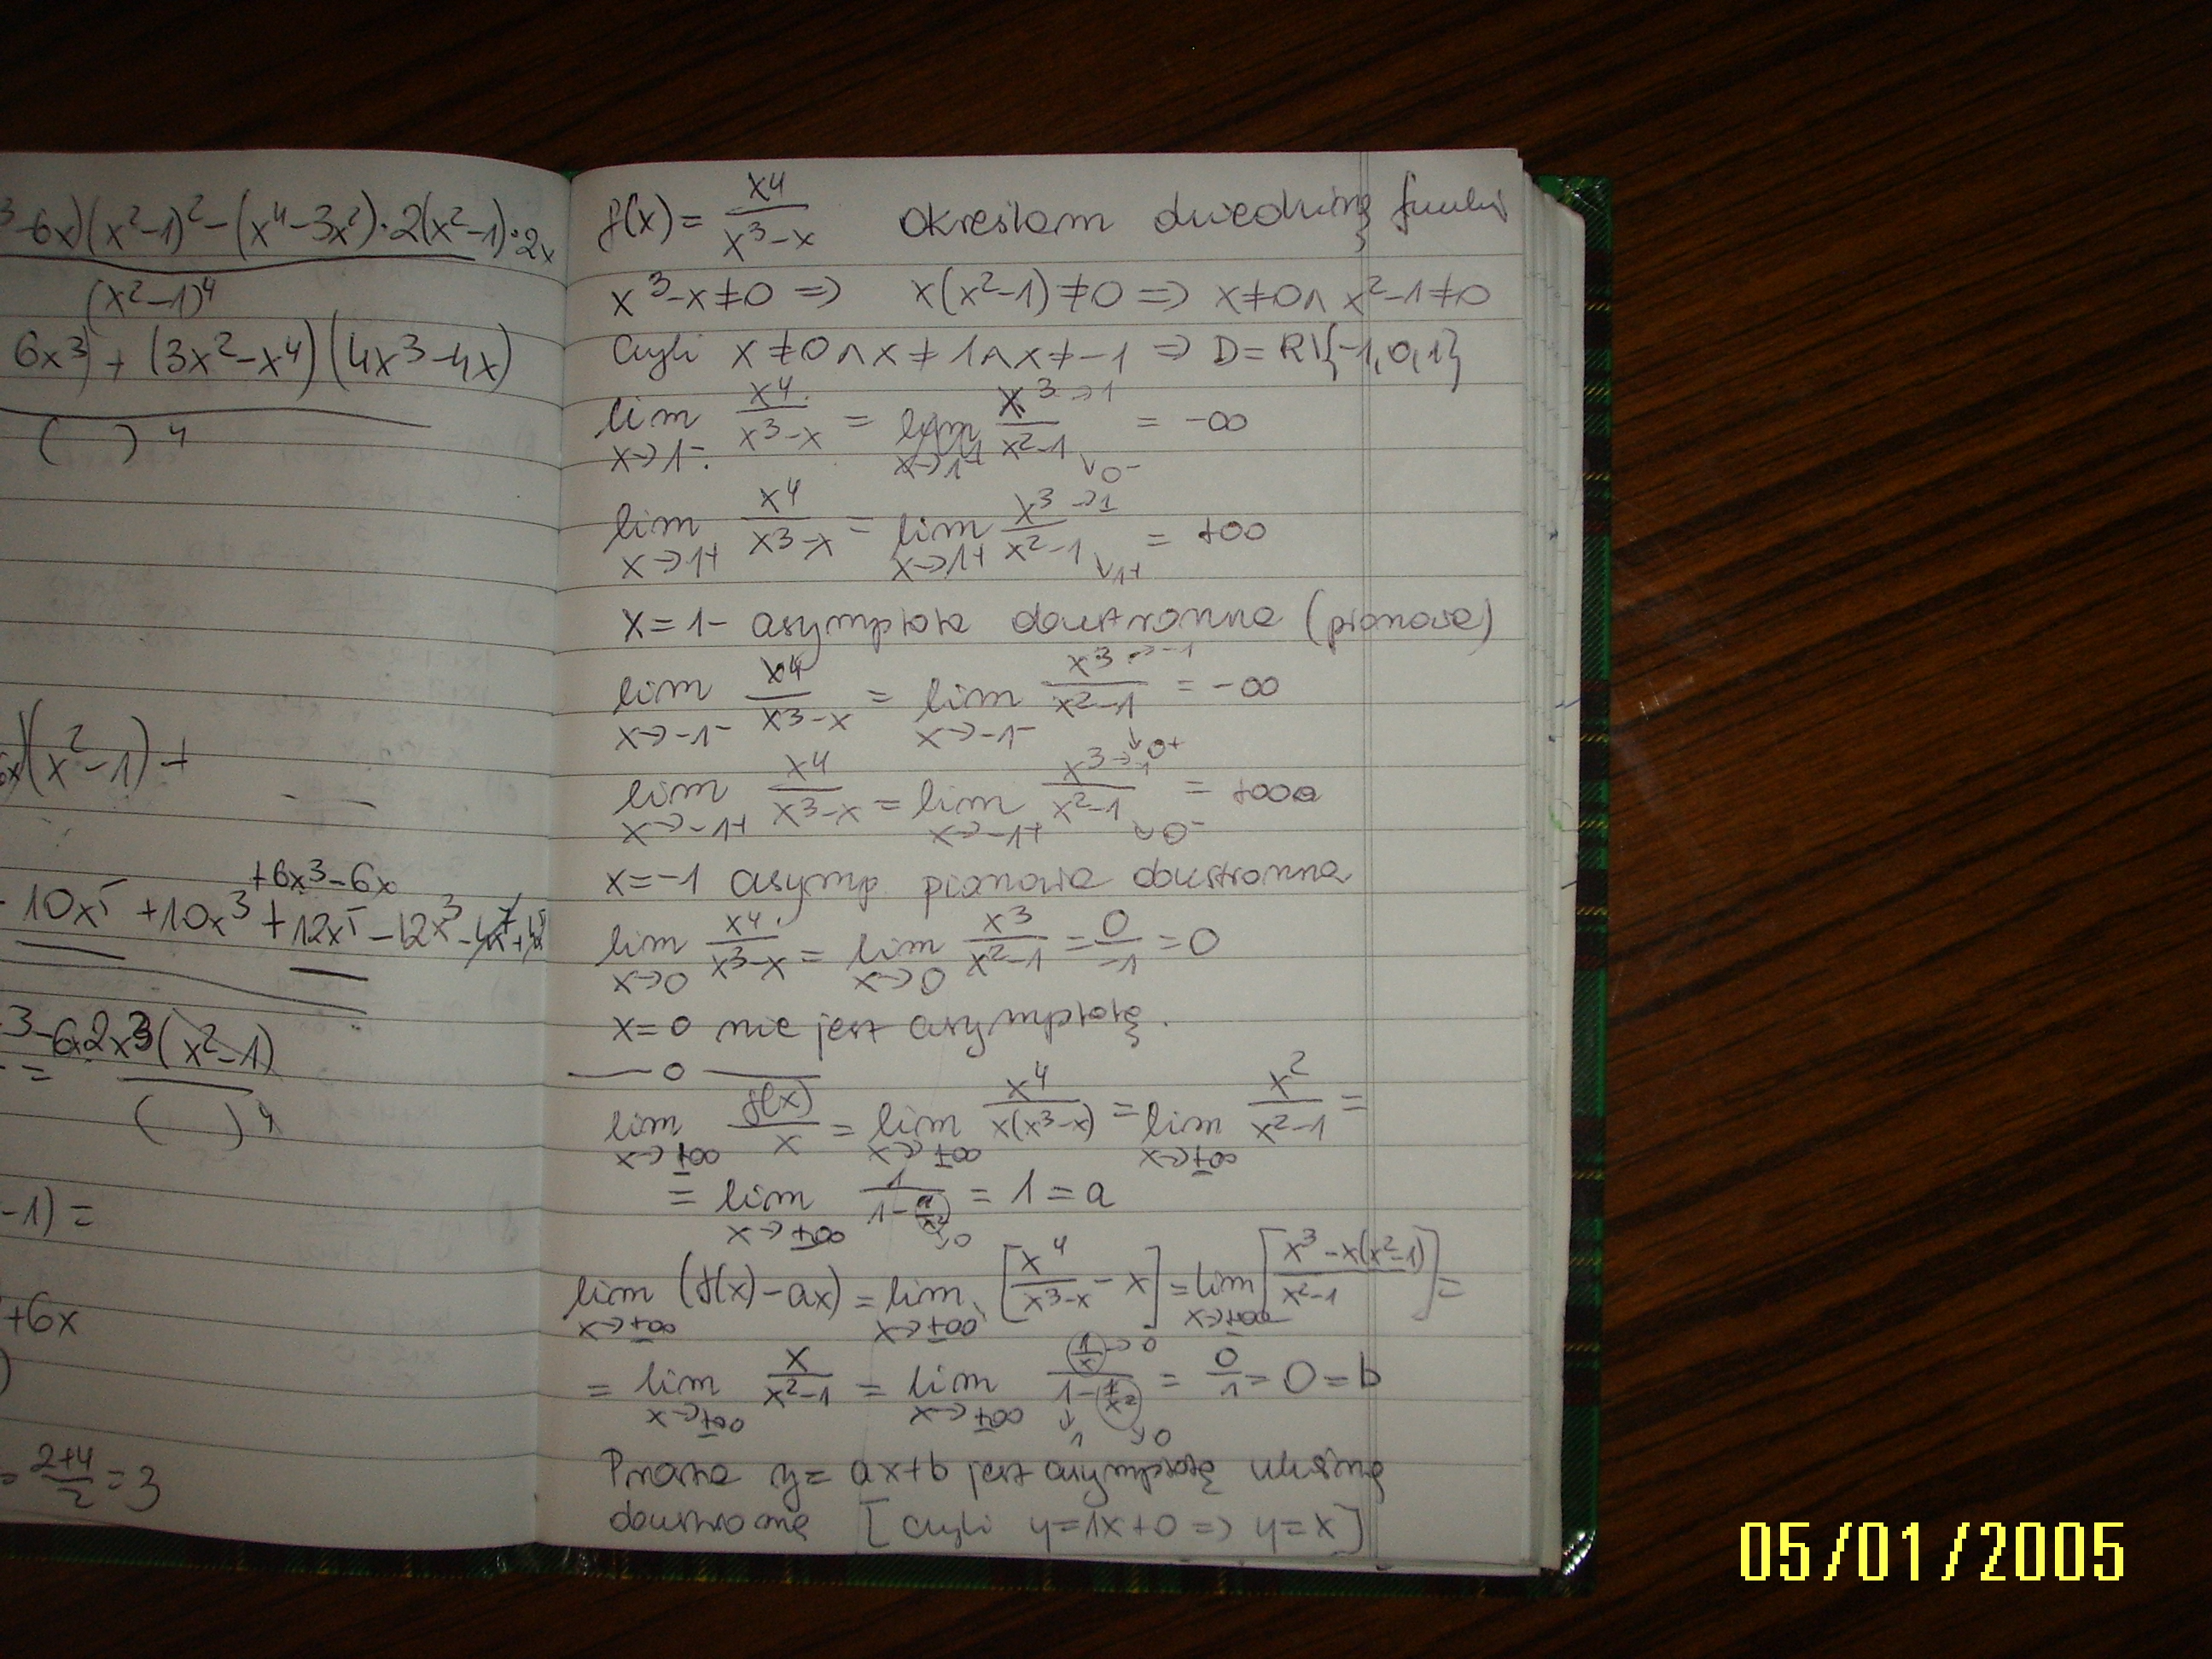 3-6x)(x²-1)²-(x⁴-3x²)·2(x²-1)·2x
(x²-1)⁴
6x³) + (3x²-x⁴)(4x³-4x)
( )⁴
6x)(x²-1)+
+6x³-6x
-10x⁵+10x³+12x⁵-12x³-4x⁷+4x⁵
( )⁴
-1)=
+6x
)
= (2+4)/2 = 3
f(x) = x⁴/(x³-x) określam dziedzinę funkcji
x³-x≠0 => x(x²-1)≠0 => x≠0 ∧ x²-1≠0
czyli x≠0 ∧ x≠1 ∧ x≠-1 => D=R\{-1,0,1}
lim x→1⁻ x⁴/(x³-x) = lim x→1⁺ x³→1/(x²-1) ↘0⁻ = -∞
lim x→1⁺ x⁴/(x³-x) = lim x→1⁺ x³→1/(x²-1) ↘1+ = +∞
x=1 - asymptota dwustronna (pionowa)
lim x→-1⁻ x⁴/(x³-x) = lim x→-1⁻ x³→-1/(x²-1) ↓0+ = -∞
lim x→-1⁺ x⁴/(x³-x) = lim x→-1⁺ x³→-1/(x²-1) ↘0⁻ = +∞
x=-1 asymp. pionowa dwustronna
lim x→0 x⁴/(x³-x) = lim x→0 x³/(x²-1) = 0/-1 = 0
x=0 nie jest asymptotą.
— 0 —
lim x→±∞ f(x)/x = lim x→±∞ x⁴/(x(x³-x)) = lim x→±∞ x²/(x²-1) =
= lim x→±∞ 1/(1-1/x²) ↘0 = 1 = a
lim x→±∞ (f(x)-ax) = lim x→±∞ [x⁴/(x³-x) - x] = lim x→±∞ [(x³-x(x²-1))/(x²-1)] =
= lim x→±∞ x/(x²-1) = lim x→±∞ (1/x)→0/(1-1/x²) ↓1 ↘0 = 0/1 = 0 = b
Prosta y=ax+b jest asymptotą ukośną
dwustronną [czyli y=1x+0 => y=x]
05/01/2005